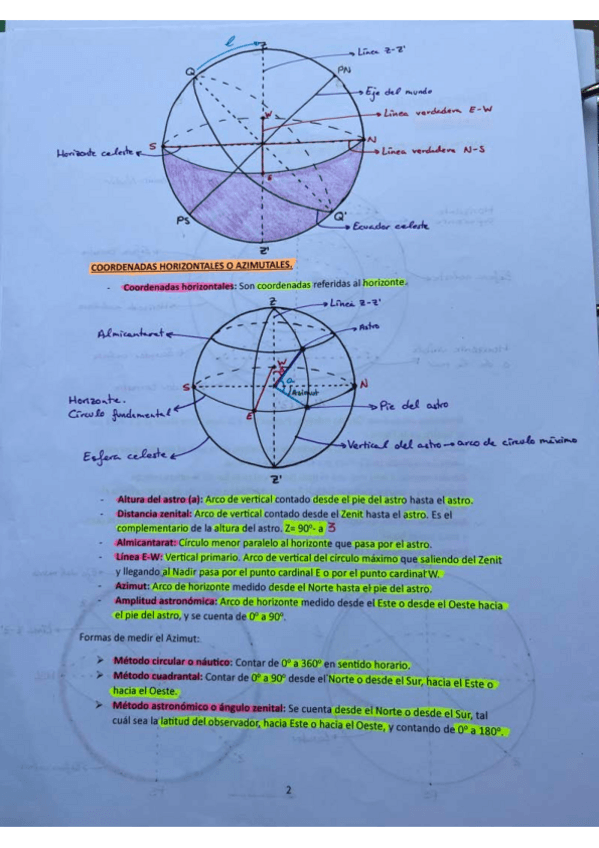 l
Z
Línea Z-Z'
Q
PN
Eje del mundo
W
Línea verdadera E-W
S
N
Horizonte celeste
Línea verdadera N-S
E
PS
Q'
Ecuador celeste
Z'
COORDENADAS HORIZONTALES O AZIMUTALES.
- Coordenadas horizontales: Son coordenadas referidas al horizonte.
Z
Línea Z-Z'
Almicantarat
Astro
W
S
N
a
Azimut
Horizonte.
Círculo fundamental
E
Pie del astro
Vertical del astro → arco de círculo máximo
Esfera celeste
Z'
- Altura del astro (a): Arco de vertical contado desde el pie del astro hasta el astro.
- Distancia zenital: Arco de vertical contado desde el Zenit hasta el astro. Es el
complementario de la altura del astro. Z= 90º- a 3
- Almicantarat: Círculo menor paralelo al horizonte que pasa por el astro.
- Línea E-W: Vertical primario. Arco de vertical del círculo máximo que saliendo del Zenit
y llegando al Nadir pasa por el punto cardinal E o por el punto cardinal W.
- Azimut: Arco de horizonte medido desde el Norte hasta el pie del astro.
- Amplitud astronómica: Arco de horizonte medido desde el Este o desde el Oeste hacia
el pie del astro, y se cuenta de 0º a 90º.
Formas de medir el Azimut:
➢ Método circular o náutico: Contar de 0º a 360º en sentido horario.
➢ Método cuadrantal: Contar de 0º a 90º desde el Norte o desde el Sur, hacia el Este o
hacia el Oeste.
➢ Método astronómico o ángulo zenital: Se cuenta desde el Norte o desde el Sur, tal
cuál sea la latitud del observador, hacia Este o hacia el Oeste, y contando de 0º a 180º.
2